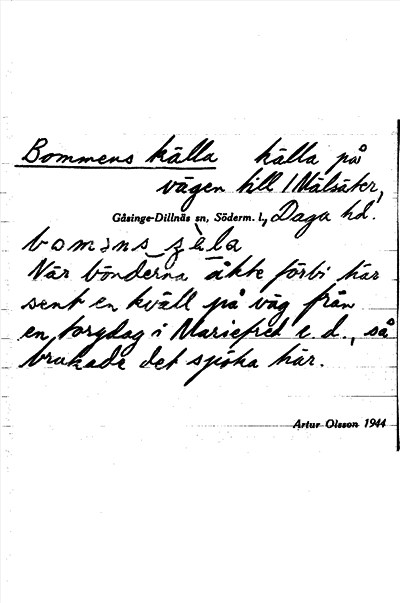 Bommens källa källa på
vägen till Målsäter,
Gåsinge-Dillnäs sn, Söderm. l., Daga hd.
Når bönderna åkte förbi här
sent en kväll på väg från
en torgdag i Mariefred e. d., så
brukade det spöka här.
Artur Olsson 1944